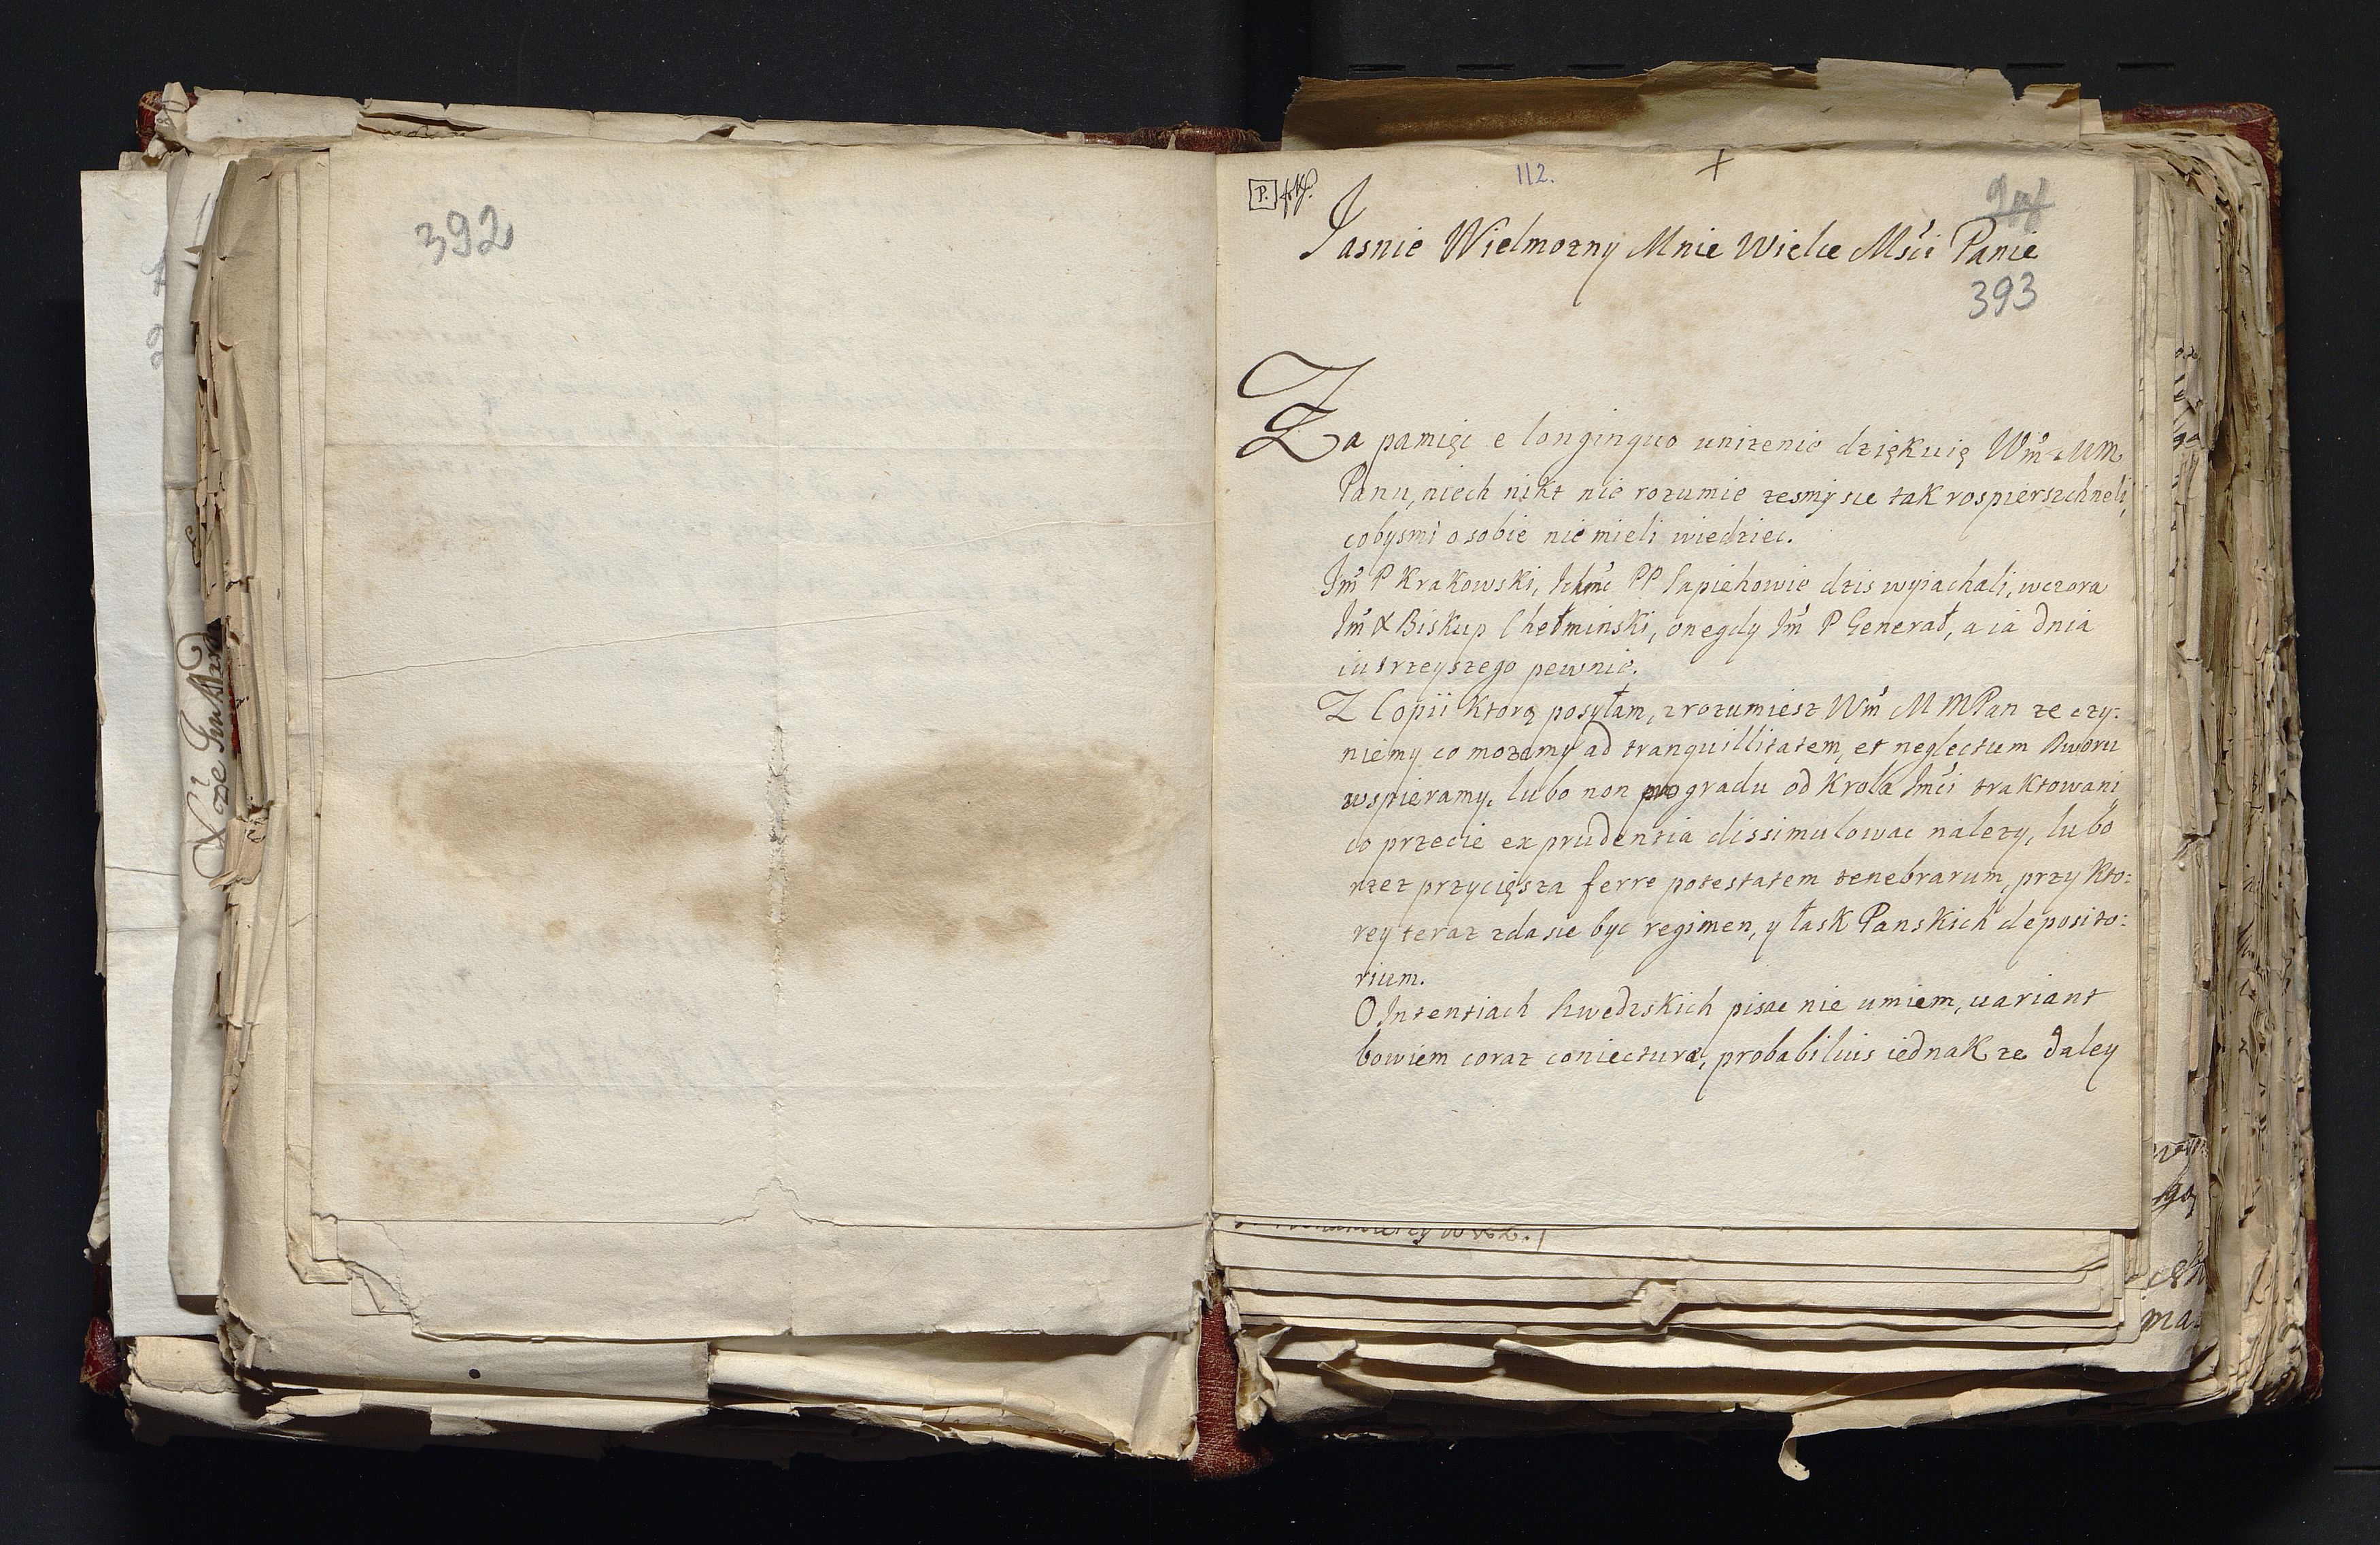 392
P.
112.
Jasnie Wielmozny Mnie Wielce Msci Panie
393
Za pamięc e longinquo unizenie dziękuię Wm M M
Panu, niech nikt nie rozumie zesmy sie tak rospierszchneli,
cobysmi o sobie nie mieli wiedziec.
Jm P Krakowski, Ichmc PP Sapiehowie dzis wyiachali, wczora
Jm X Biskup Chełminski, onegdy Jm P Generał, a ia dnia
iutrzeyszego pewnie.
Z Copii ktorą posyłam, zrozumiesz Wm M M Pan ze czy:
niemy co mozemy ad tranquillitatem, et neglectum Dworu
wspieramy, lubo non pro gradu od Krola Jmci traktowani,
co przecie ex prudentia dissimulowac nalezy, lubo
rzez przycięsza ferre potestatem tenebrarum, przy kto:
rey teraz zda sie byc regimen, y łask Panskich deposito:
rium.
O Intentiach Szwedzkich pisac nie umiem, uariant
bowiem coraz coniecturæ, probabilius iednak ze daley